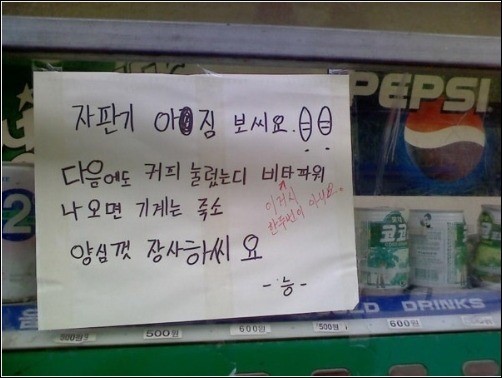 자판기 아짐 보씨요.
다음에도 커피 눌렀는디 비타파워
이거시
한두번이 아녀요.
나오면 기계는 죽소
양심껏 장사하씨요
- 능 -
PEPSI
코코
D DRINKS
500원
500원
600원
500원
600원